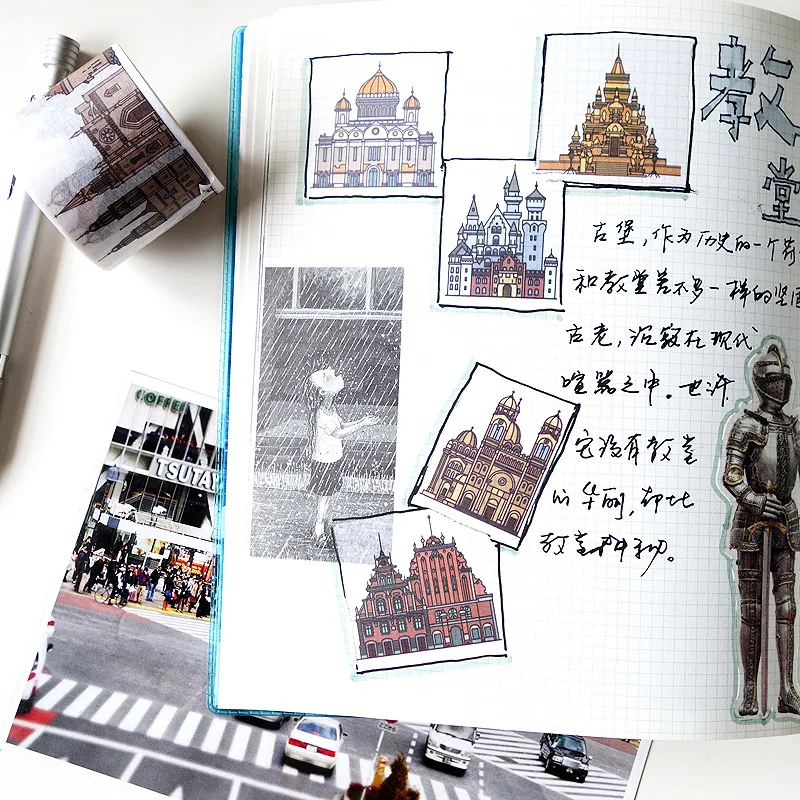 教
堂
古堡，作为历史的一个
和教堂差不多一样的坚
古老，沉寂在现代
喧嚣之中。也许
它没有教堂
的华丽，却比
教堂神秘。
COFFEE
TSUTAY